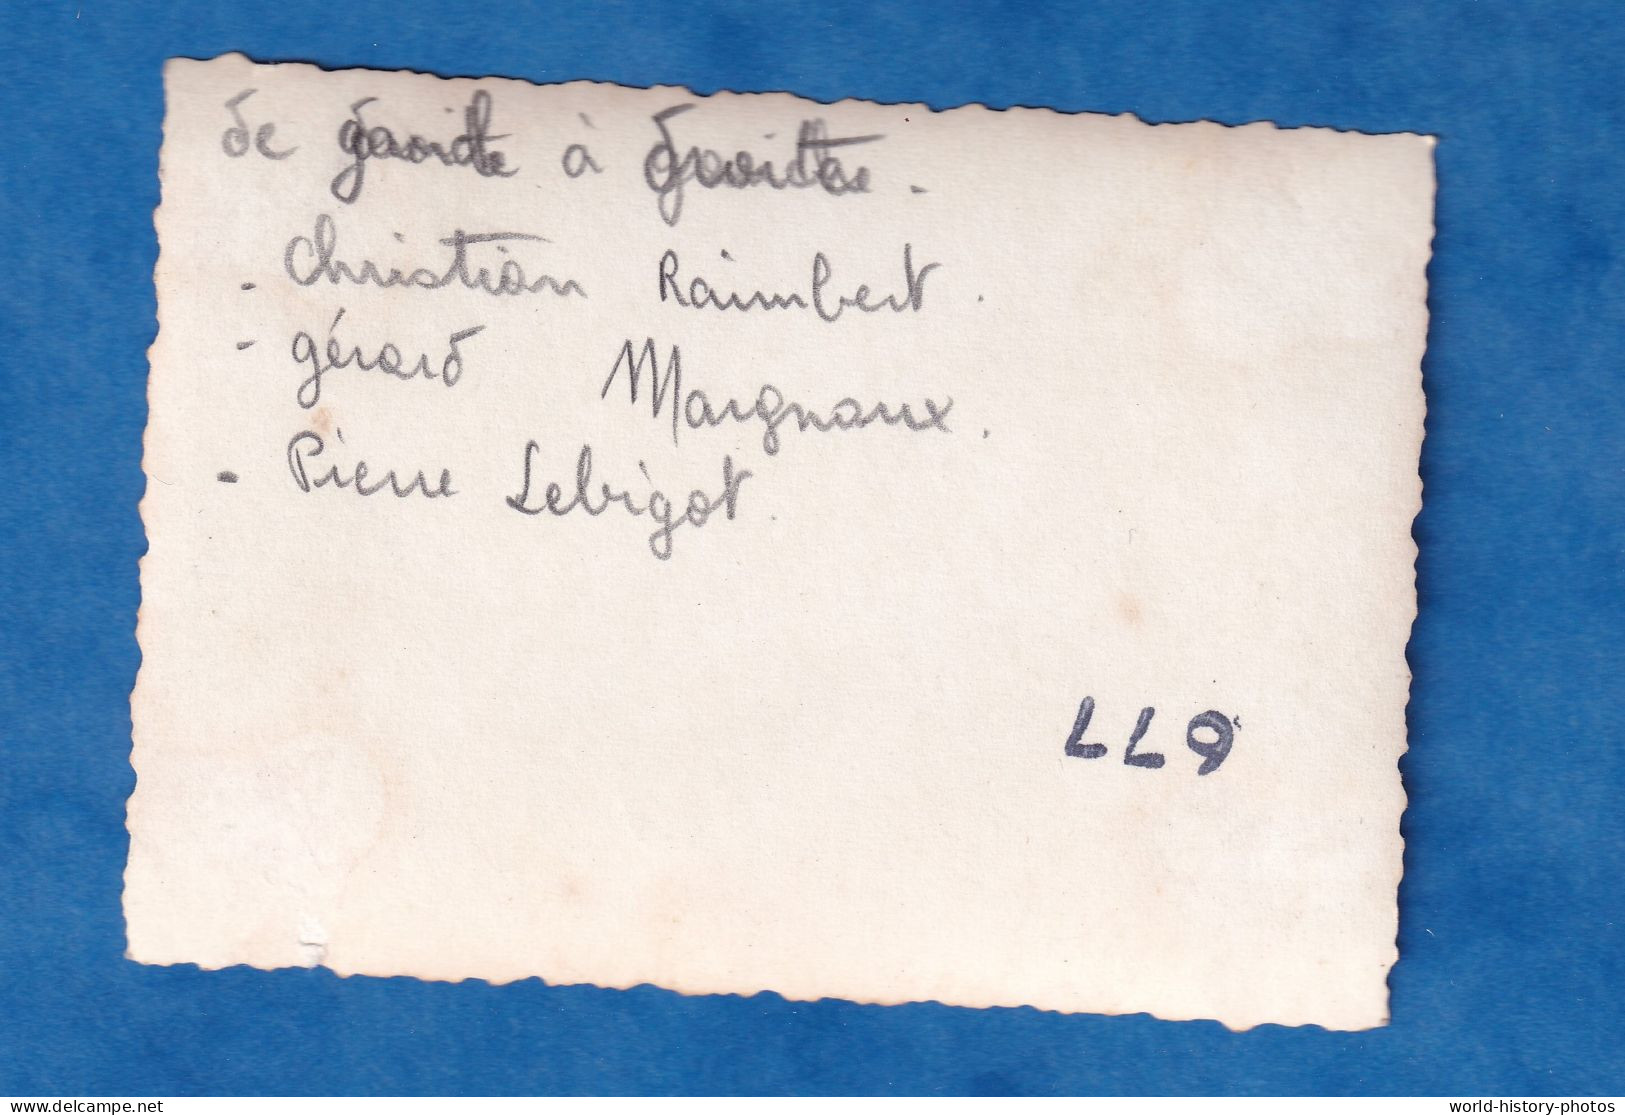 de à .
- Christian Raimbert.
- gérard Maignaux.
- Pierre Lebigot.
677
delcampe.net
world-history-photos